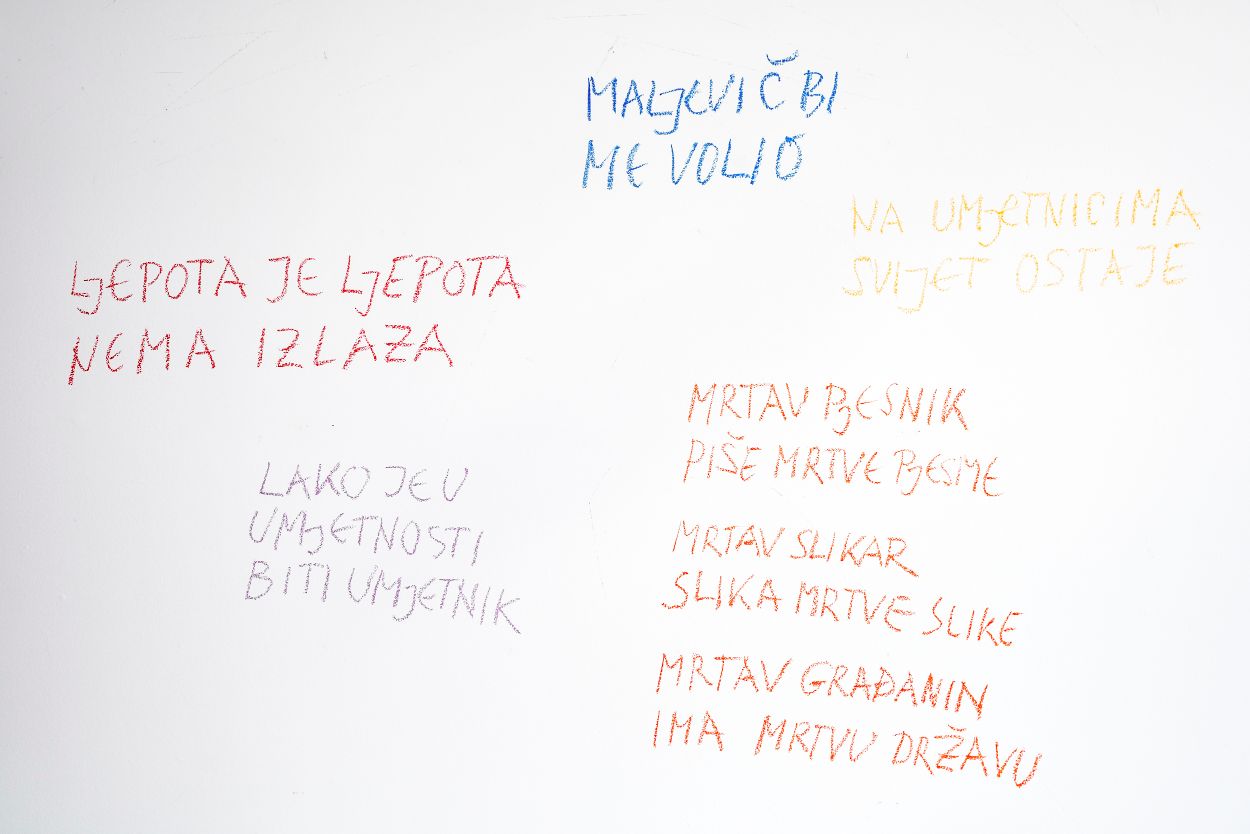 MALJEVIČ BI
ME VOLIO
NA UMJETNICIMA
SVIJET OSTAJE
LJEPOTA JE LJEPOTA
NEMA IZLAZA
MRTAV PJESNIK
PIŠE MRTVE PJESME
MRTAV SLIKAR
SLIKA MRTVE SLIKE
MRTAV GRAĐANIN
IMA MRTVU DRŽAVU
LAKO JE U
UMJETNOSTI
BITI UMJETNIK